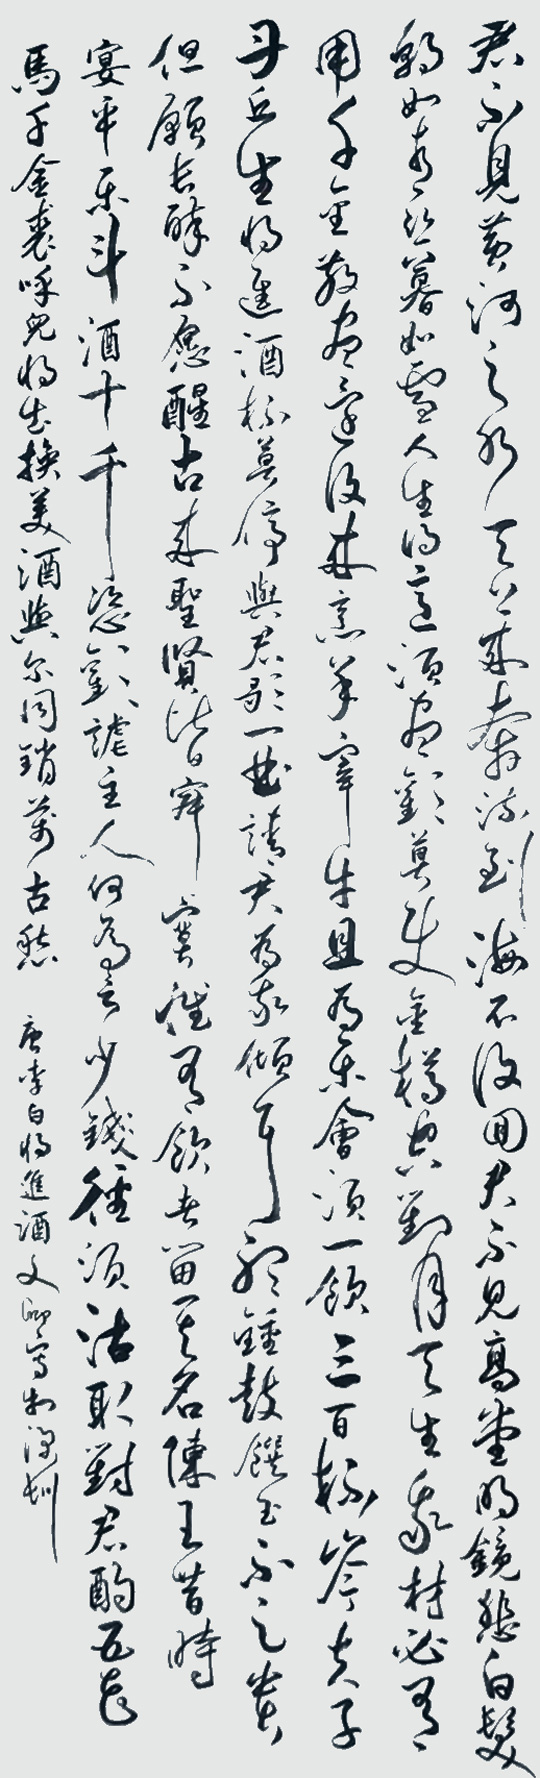 君不見黃河之水天上來奔流到海不復回君不見高堂明鏡悲白髮
朝如青絲暮如雪人生得意須盡歡莫使金樽空對月天生我材必有
用千金散盡還復來烹羊宰牛且為樂會須一飲三百杯岑夫子
丹丘生將進酒杯莫停與君歌一曲請君為我傾耳聽鐘鼓饌玉不足貴
但願長醉不愿醒古來聖賢皆寂寞惟有飲者留其名陳王昔時
宴平樂斗酒十千恣歡謔主人何為言少錢徑須沽取對君酌五花
馬千金裘呼兒將出換美酒與尔同銷萬古愁 唐李白將進酒文卿寫於深圳